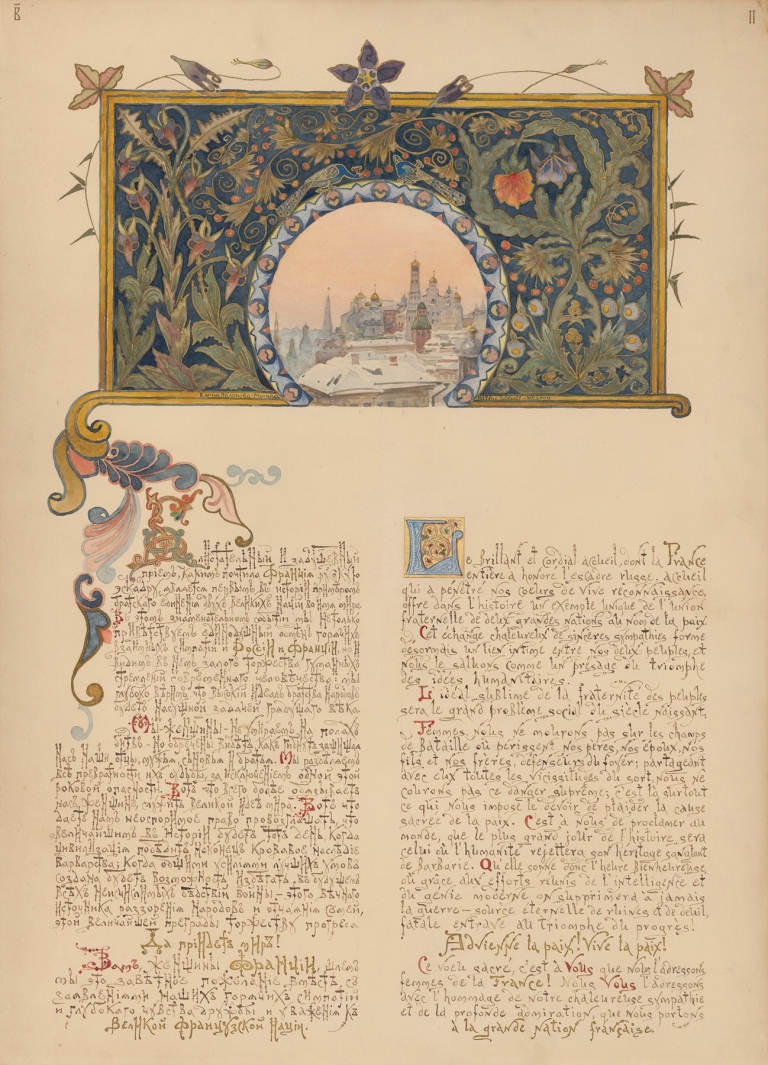 В̄
II
Блистательный и задушевный
прiемъ, какимъ почтила Францiя русскую
эскадру, является первымъ въ исторiи примѣромъ
братскаго единенiя двухъ великихъ нацiй во имя мира.
Въ этомъ знаменательномъ событiи мы не только
привѣтствуемъ единодушный обмѣнъ горячихъ
взаимныхъ симпатiй Россiи и Францiи, но и
видимъ въ немъ залогъ торжества гуманныхъ
стремленiй современнаго человѣчества: мы
глубоко вѣримъ, что высокiй идеалъ братства народовъ
будетъ насущной задачей грядущаго вѣка.
Мы, женщины - не умираемъ на поляхъ
битвъ - но обречены видѣть, какъ гибнутъ защищая
насъ наши отцы, мужья, сыновья и братья. Мы раздѣляемъ
всѣ превратности ихъ судьбы, за исключенiемъ одной этой
роковой опасности. Вотъ что всего болѣе обязываетъ
насъ, женщинъ, служить великой идеѣ мира. Вотъ что
даетъ намъ неоспоримое право провозглашать, что
величайшимъ въ исторiи будетъ тотъ день, когда
цивилизацiя побѣдитъ наконецъ кровавое наслѣдiе
варварства; когда общими усилiями лучшихъ умовъ
создана будетъ возможность избѣгать въ будущемъ
всѣхъ неисчислимыхъ бѣдствiй войны - этого вѣчнаго
источника раззоренiя народовъ и отчаянiя семей,
этой величайшей преграды торжеству прогресса.
Да прiидетъ миръ!
Вамъ, женщины Францiи, шлемъ
мы это завѣтное пожеланiе вмѣстѣ съ
заявленiями нашихъ горячихъ симпатiй
и глубокаго чувства дружбы и уваженiя къ
великой французской нацiи.
Le brillant et cordial accueil, dont la France
entière a honoré l'escadre russe, accueil
qui a pénétré nos coeurs de vive reconnaissance,
offre dans l'histoire un exemple unique de l'union
fraternelle de deux grandes nations au nom de la paix.
Cet échange chaleureux de sincères sympathies forme
désormais un lien intime entre nos deux peuples, et
nous le saluons comme un présage du triomphe
des idées humanitaires.
L'idéal sublime de la fraternité des peuples
sera le grand problème social du siècle naissant.
Femmes, nous ne mourons pas sur les champs
de bataille où périssent nos pères, nos époux, nos
fils et nos frères, défenseurs du foyer: partageant
avec eux toutes les vicissitudes du sort, nous ne
courons pas ce danger suprême; c'est là surtout
ce qui nous impose le devoir de plaider la cause
sacrée de la paix. C'est à nous de proclamer au
monde, que le plus grand jour de l'histoire sera
celui où l'humanité rejettera son héritage sanglant
de barbarie. Qu'elle sonne donc l'heure bienheureuse,
où grâce aux efforts réunis de l'intelligence et
du génie moderne on supprimera à jamais
la guerre - source éternelle de ruines et de deuil,
fatale entrave au triomphe du progrès!
Advienne la paix! Vive la paix!
Ce voeu sacré, c'est à Vous que nous l'adressons
femmes de la France! Nous Vous l'adressons
avec l'hommage de notre chaleureuse sympathie
et de la profonde admiration que nous portons
à la grande nation française.